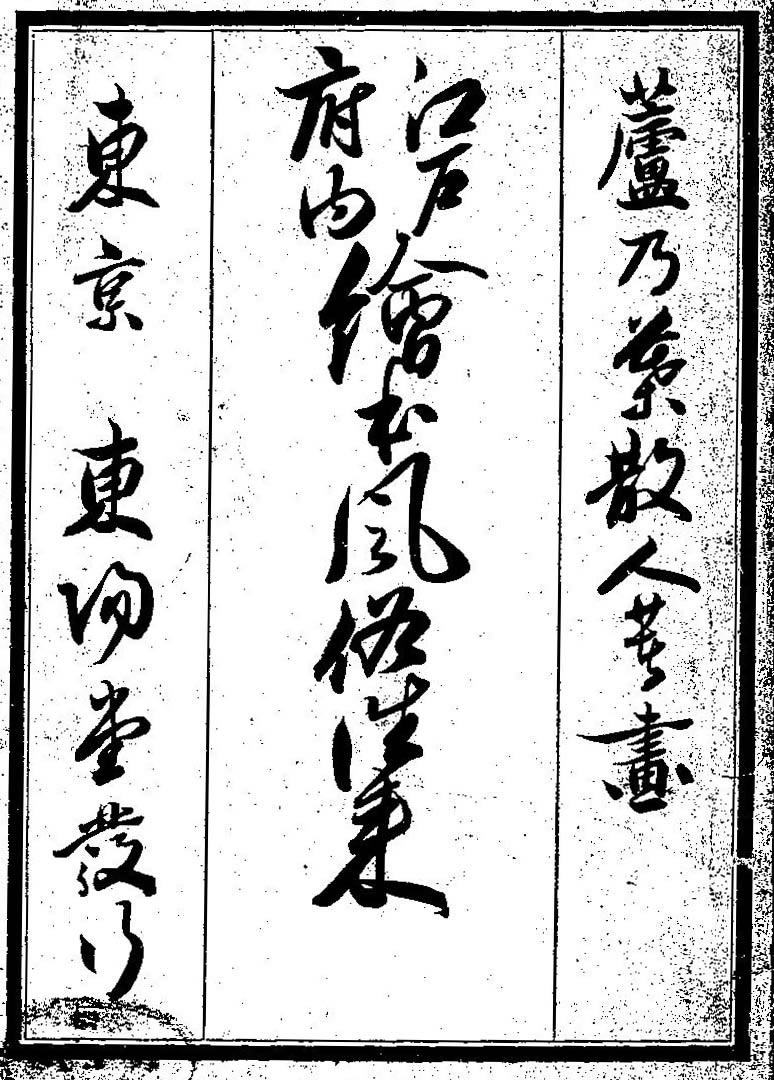 蘆乃葉散人著畫
江戸
府内
繪本風俗往来
東京 東陽堂發行